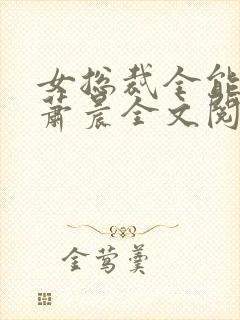 女总裁全能
萧晨全文阅
金莺羹